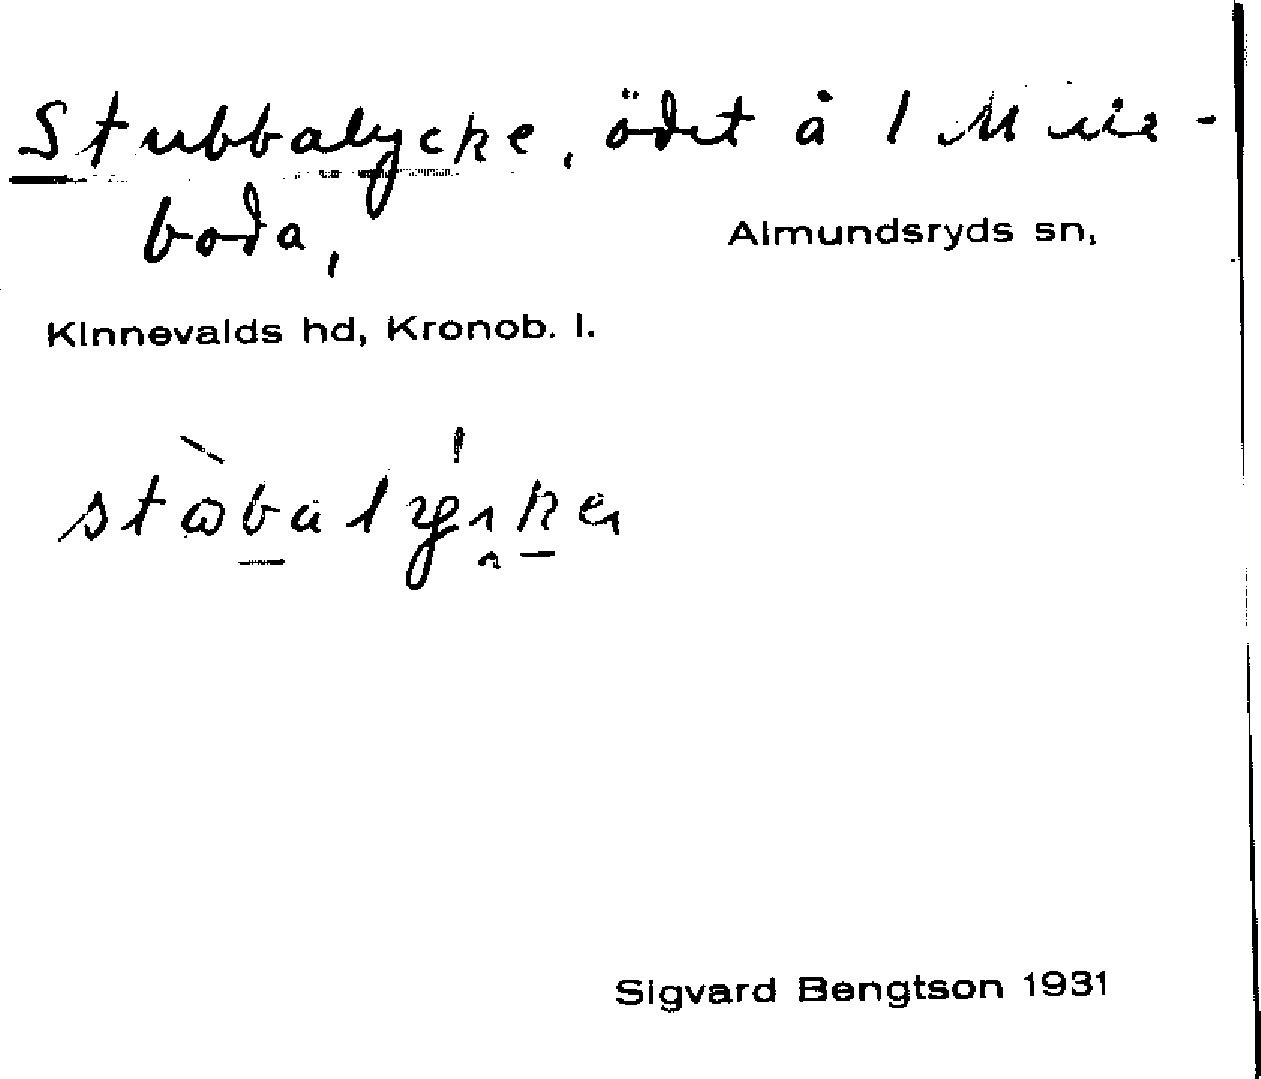 Stubbalycke, ödet å 1 Muie-
boda,
Almundsryds sn,
Kinnevalds hd, Kronob. l.
Sigvard Bengtson 1931